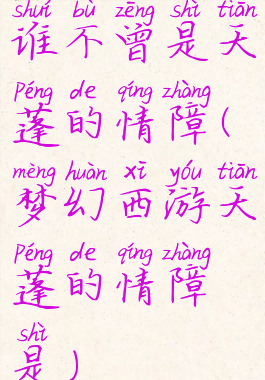 shuí bù zēng shì tiān
谁不曾是天
Péng de qíng zhàng
蓬的情障(
mèng huàn xī yóu tiān
梦幻西游天
Péng de qíng zhàng
蓬的情障
shì
是)